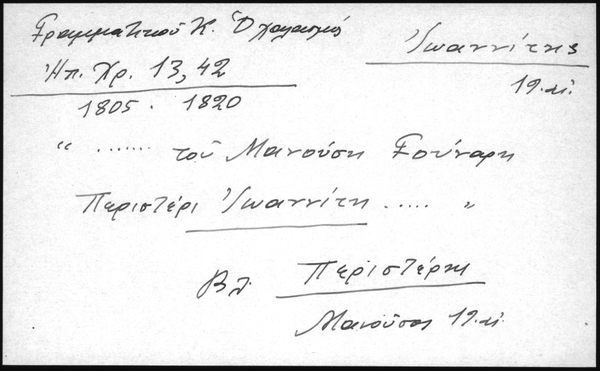 Γραμματικού Κ. Ὁ χαλασμός
Ἰωαννίτης
Ἠπ. Χρ. 13, 42
19. αἰ.
1805 - 1820
“ ...... τοῦ Μανούση Γούναρη
Περιστέρι Ἰωαννίτη ..... ”
Βλ. Περιστέρης
Μανούσος 19. αἰ.